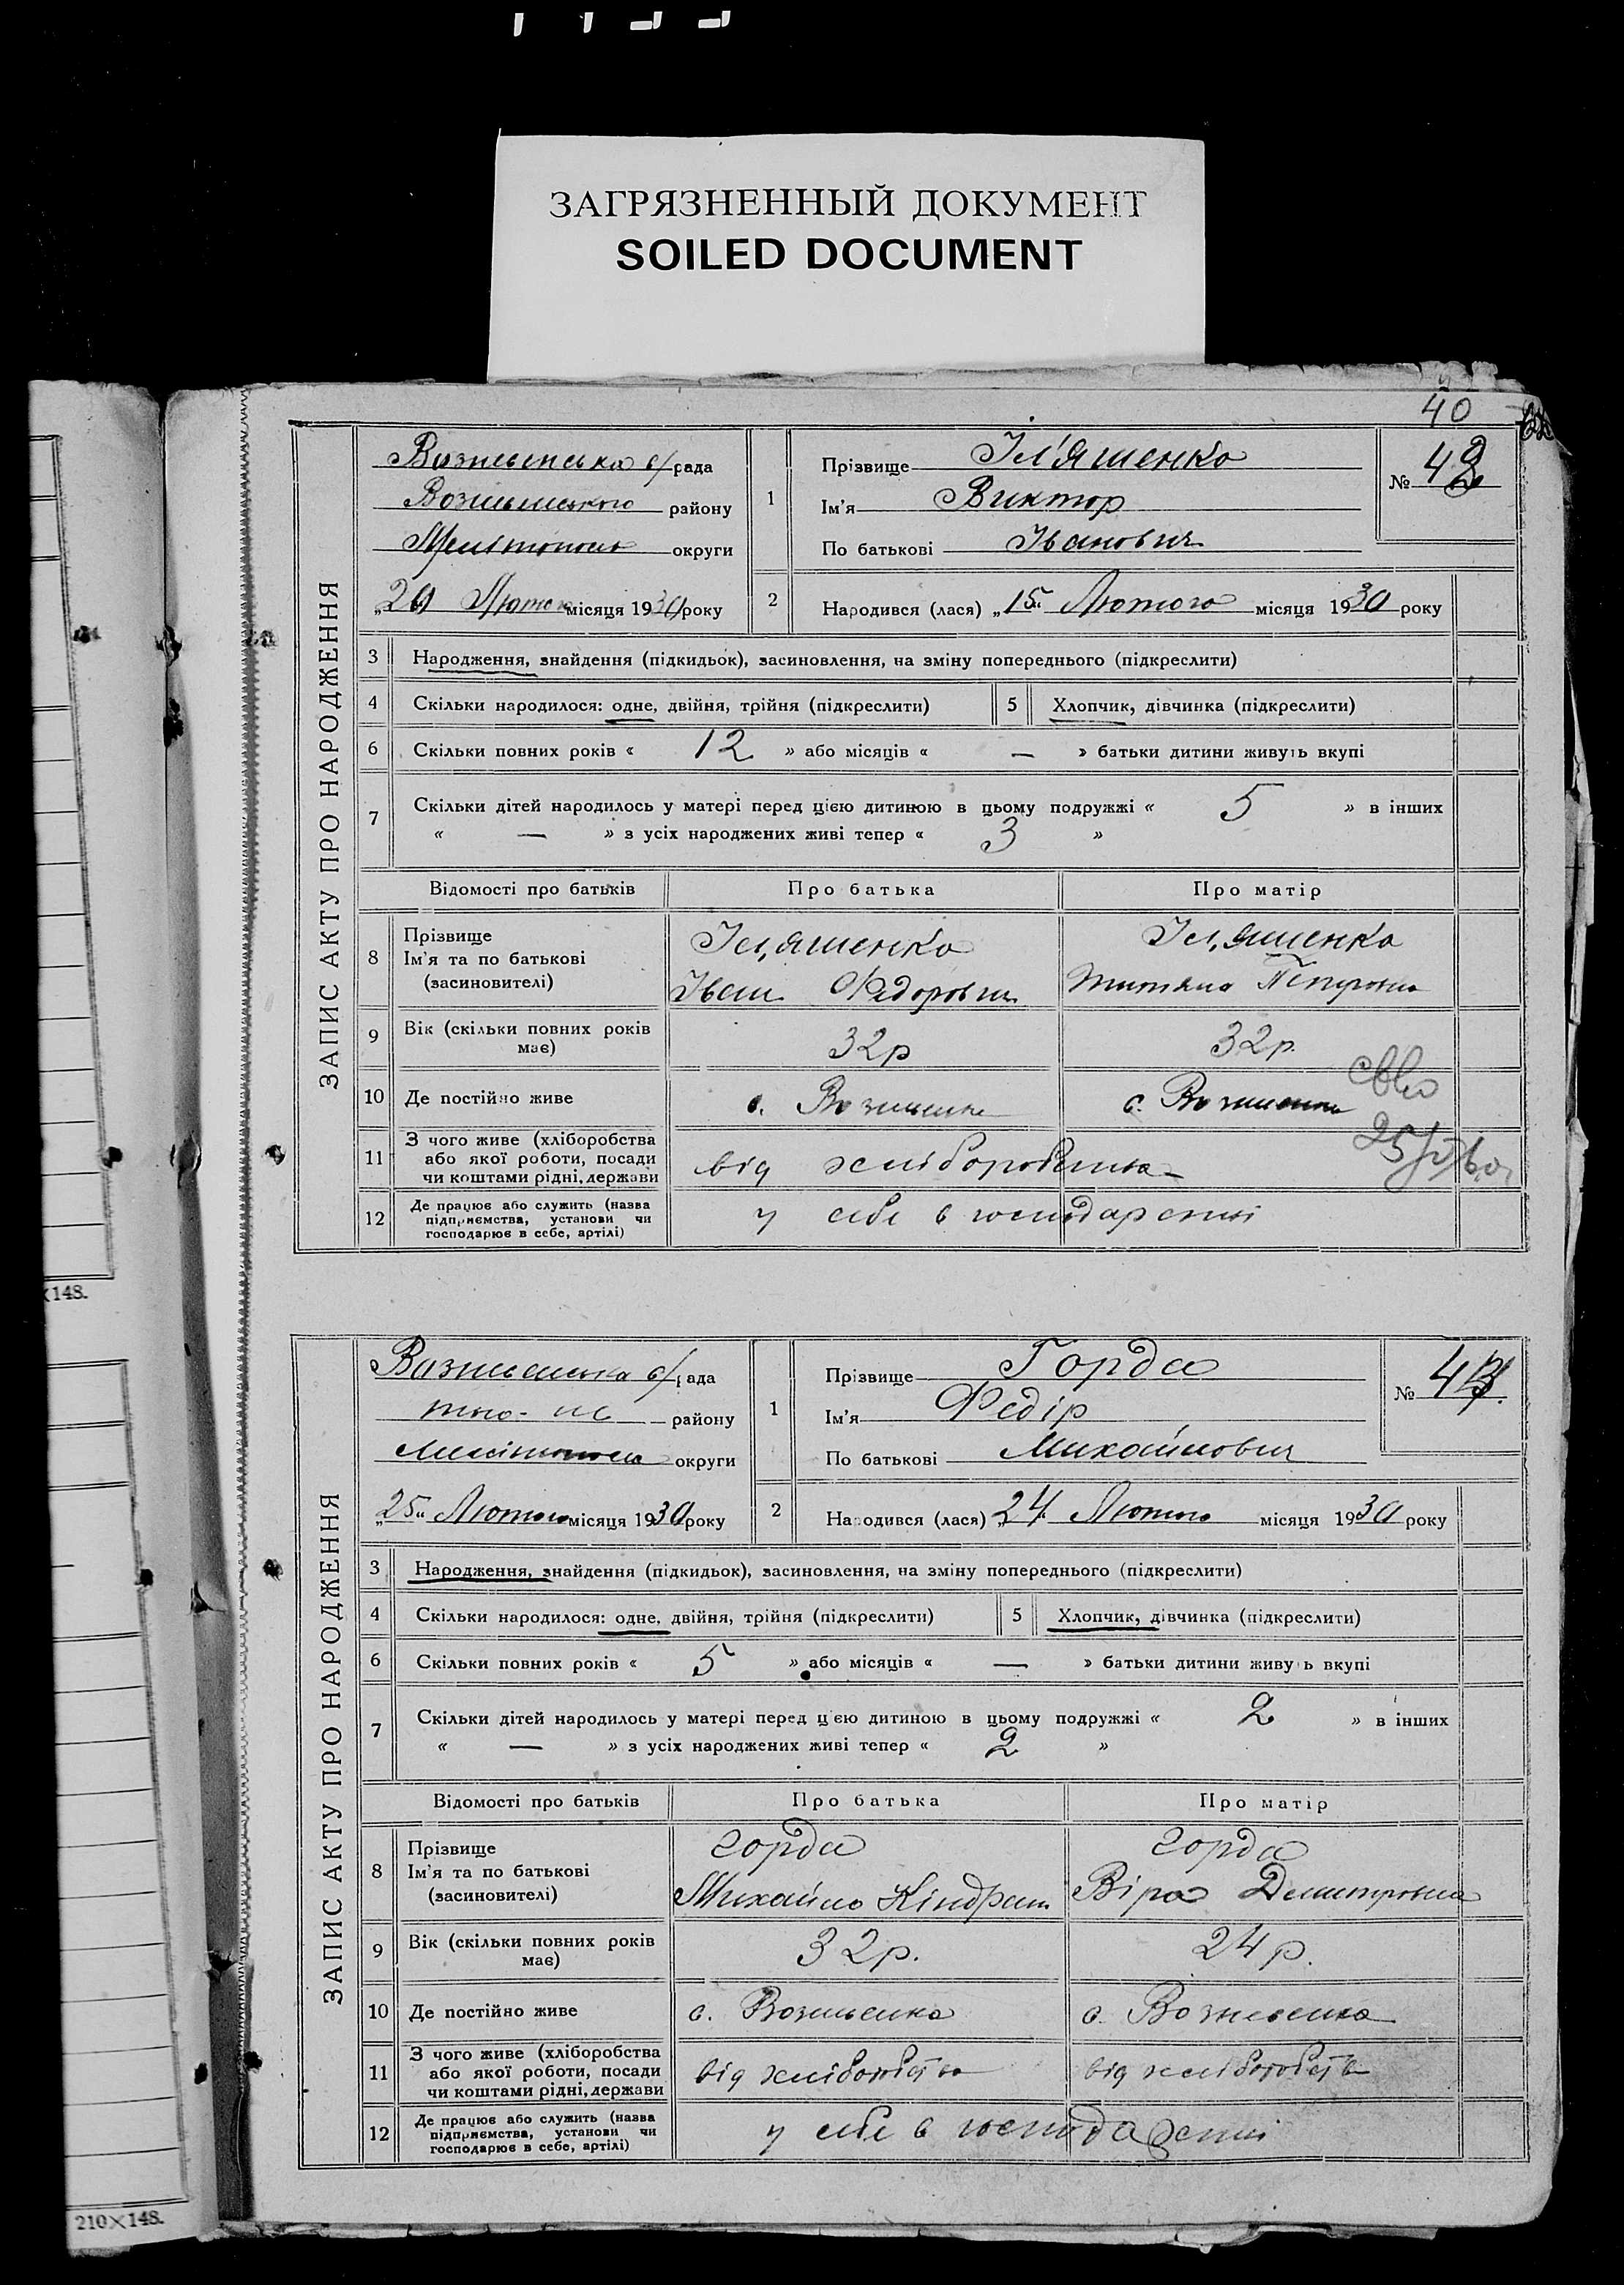 ЗАГРЯЗНЕННЫЙ ДОКУМЕНТ
SOILED DOCUMENT
40
ЗАПИС АКТУ ПРО НАРОДЖЕННЯ
с/рада
району
округи
місяця 1930 року
1
Прізвище Іл'яшенко
Ім'я Виктор
По батькові Іванович
№ 42
2
Народився (лася) „15" Лютого місяця 1930 року
3 Народження, знайдення (підкидьок), засиновлення, на зміну попереднього (підкреслити)
4 Скільки народилося: одне, двійня, трійня (підкреслити) 5 Хлопчик, дівчинка (підкреслити)
6 Скільки повних років « 12 » або місяців « — » батьки дитини живуть вкупі
7 Скільки дітей народилось у матері перед цією дитиною в цьому подружжі « 5 » в інших
« — » з усіх народжених живі тепер « 3 »
Відомості про батьків Про батька Про матір
8 Прізвище
Ім'я та по батькові
(засновителі)
Іл,яшенко
Іван Федорович
Іл,яшенко
9 Вік (скільки повних років
має)
32р 32р.
10 Де постійно живе с. с.
11 З чого живе (хліборобства
або якої роботи, посади
чи коштами рідні, держави
від хліборобства
12 Де працює або служить (назва
підприємства, установи чи
господарює в себе, артілі)
у себе в господарстві
×148.
ЗАПИС АКТУ ПРО НАРОДЖЕННЯ
с/рада
району
округи
„25" Лютого місяця 1930 року
1
Прізвище Горда
Ім'я Федір
По батькові Михайлович
№
2
Народився (лася) „24" Лютого місяця 1930 року
3 Народження, знайдення (підкидьок), засиновлення, на зміну попереднього (підкреслити)
4 Скільки народилося: одне, двійня, трійня (підкреслити) 5 Хлопчик, дівчинка (підкреслити)
6 Скільки повних років « 5 » або місяців « — » батьки дитини живуть вкупі
7 Скільки дітей народилось у матері перед цією дитиною в цьому подружжі « 2 » в інших
« — » з усіх народжених живі тепер « 2 »
Відомості про батьків Про батька Про матір
8 Прізвище
Ім'я та по батькові
(засиновителі)
Горда
Михайло Кіндрат
Горда
Віра Дмитровна
9 Вік (скільки повних років
має)
32р. 24р.
10 Де постійно живе с. Вознесенка с. Вознесенка
11 З чого живе (хліборобства
або якої роботи, посади
чи коштами рідні, держави
від хліборобства від хліборобства
12 Де працює або служить (назва
підприємства, установи чи
господарює в себе, артілі)
у себе в господарстві
210×148.